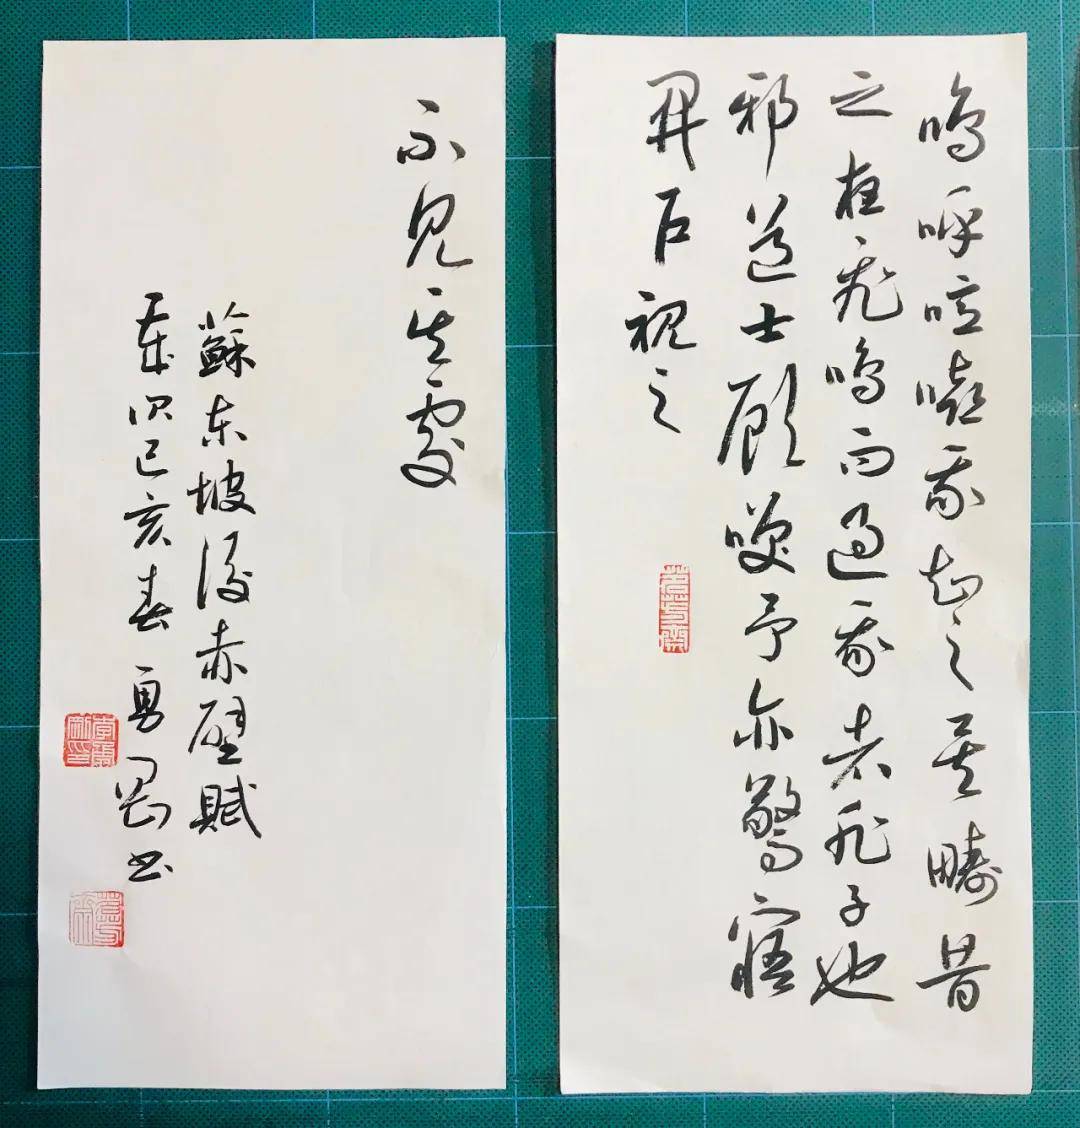 嗚呼噫嘻我知之矣疇昔
之夜飛鳴而過我者非子也
邪道士顧咲予亦驚寤
開戶視之
不見其處
蘇東坡後赤壁賦
歲次己亥春勇剛書
李勇剛印